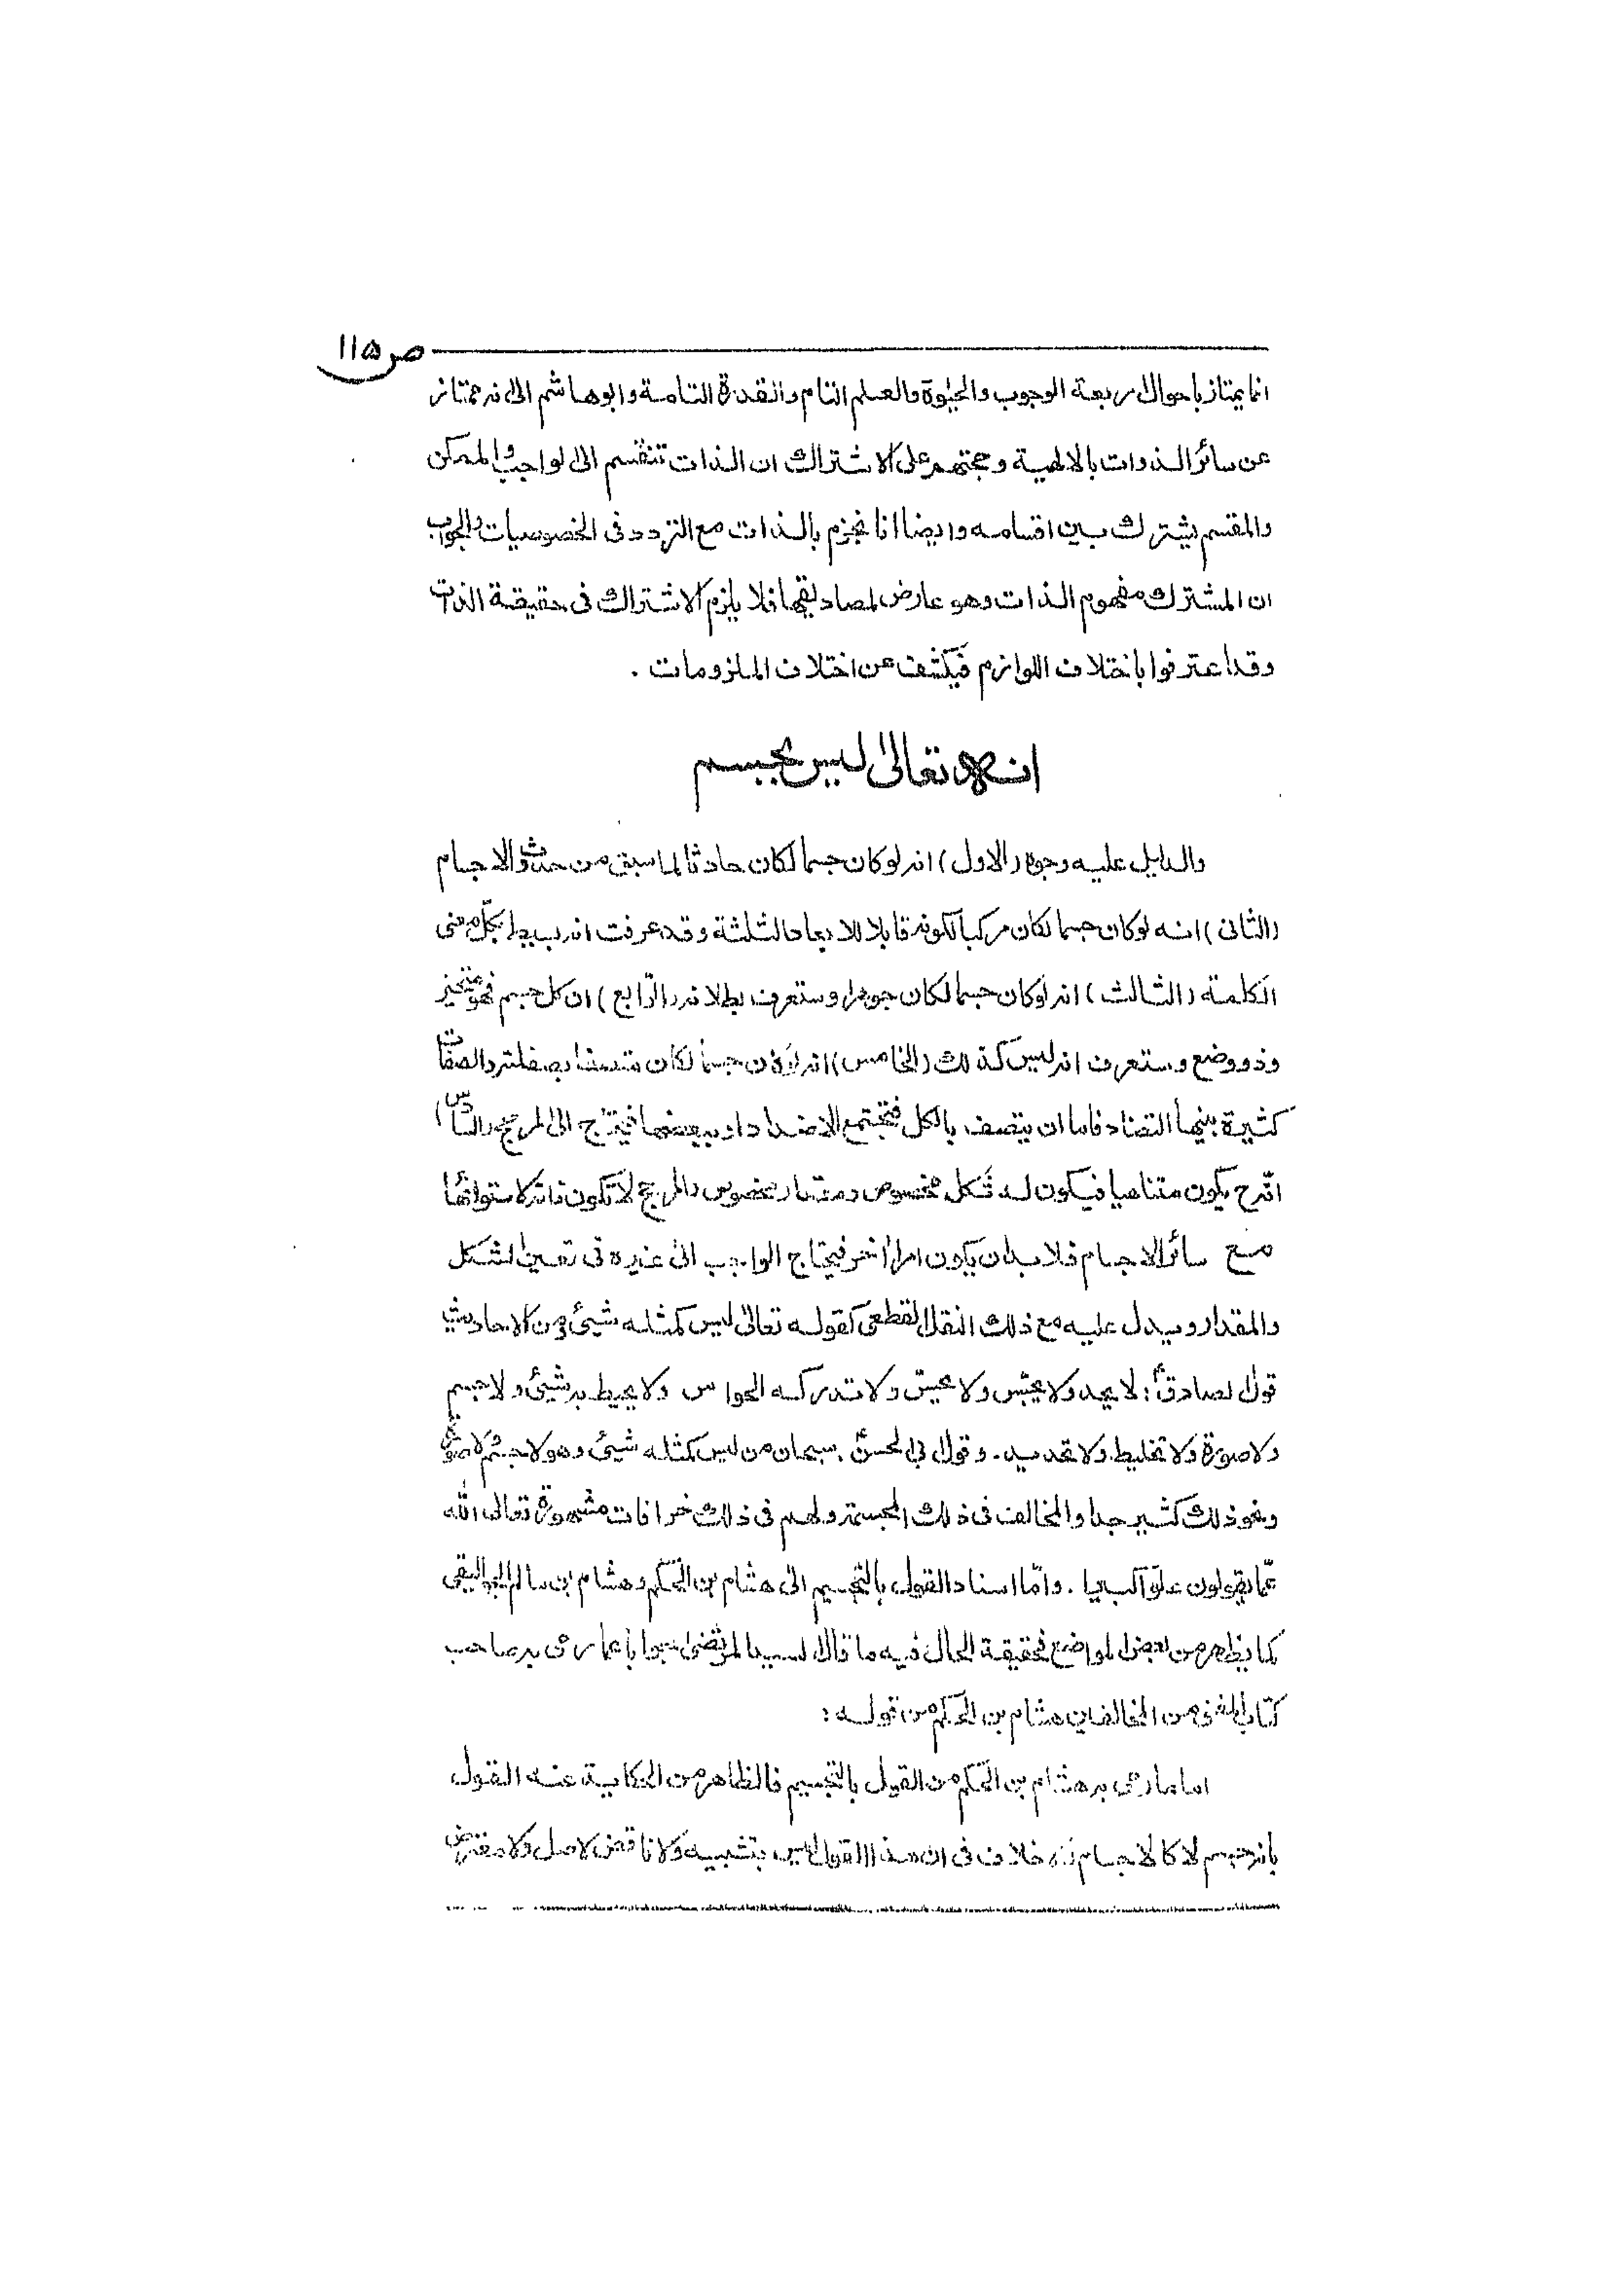 ص ١١٥
انما يمتاز باحوال اربعة الوجوب والحيٰوة والعلم التام والقدرة التامة وابوهاشم الى انه يمتاز
عن سائر الذوات بالالهية وحجتهم على الاشتراك ان الذات تنقسم الى الواجب والممكن
والمقسم يشترك بين اقسامه وايضا انا نجزم بالذات مع التردد فى الخصوصيات والجواب
ان المشترك مفهوم الذات وهو عارض لمصاديقها فلا يلزم الاشتراك فى حقيقة الذات
وقد اعترفوا باختلاف اللوازم فيكشف عن اختلاف الملزومات .
انه تعالىٰ ليس بجسم
والدليل عليه وجوه (الاول) انه لوكان جسما لكان حادثا لما سبق من حدوث الاجسام
(الثانى) انه لوكان جسما لكان مركبا لكونه قابلا للابعاد الثلثة وقد عرفت انه بسيط بكل معنى
الكلمة (الثالث) انه لوكان جسما لكان جوهرا وستعرف بطلانه (الرّابع) ان كل جسم فهو متحيز
وذو وضع وستعرف انه ليس كذلك (الخامس) انه لوكان جسما لكان متصفا بصفاته والصفات
كثيرة بينها التضاد فاما ان يتصف بالكل فتجتمع الاضداد او ببعضها فيحتاج الى المرجح (السادس)
انّه ح يكون متناهيا فيكون له شكل مخصوص ومقدار مخصوص والمرجح لا تكون ذاته لاستوائها
مع سائر الاجسام فلابد ان يكون امرا اخر فيحتاج الواجب الى غيره فى تعيين الشكل
والمقدار ويدل عليه مع ذلك النقل القطعى كقوله تعالىٰ ليس كمثله شيئ ومن الاحاديث
قول الصادق ع: لا يحد ولا يحسّ ولا يجسّ ولا تدركه الحواس ولا يحيط به شيئ ولا جسم
ولا صورة ولا تخليط ولا تحديد . وقول ابى الحسن ع سبحان من ليس كمثله شيئ وهو لا جسم ولا صورة
ونحو ذلك كثير جدا والمخالف فى ذلك المجسمة ولهم فى ذلك خرافات مشهورة تعالى الله
عمّا يقولون علوّا كبيرا . وامّا اسناد القول بالتجسيم الى هشام بن الحكم وهشام بن سالم الجواليقى
كما يظهر من بعض المواضع فحقيقة الحال فيه ما قال السيد المرتضىٰ جوابا عما رمى به صاحب
كتاب المغنى من المخالفين هشام بن الحكم من قوله :
اما ما رمى به هشام بن الحكم من القول بالتجسيم فالظاهر من الحكاية عنه القول
بانه جسم لا كالاجسام ولا خلاف فى ان هذا القول ليس بتشبيه ولا ناقض لاصل ولا معترض